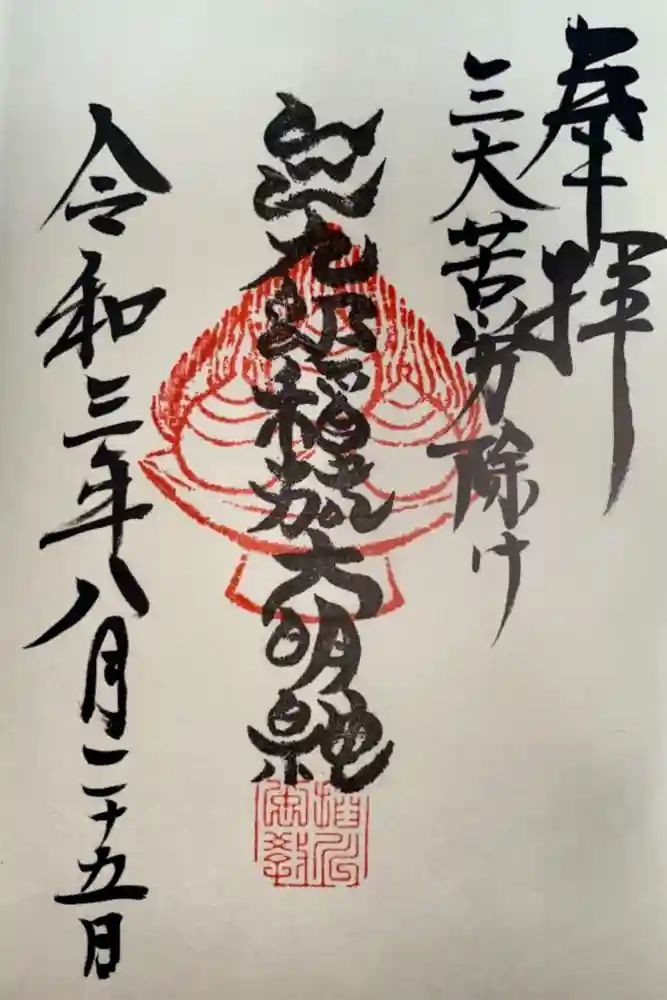 奉拝
三大苦労除け
稲荷大明神
令和三年八月二十五日